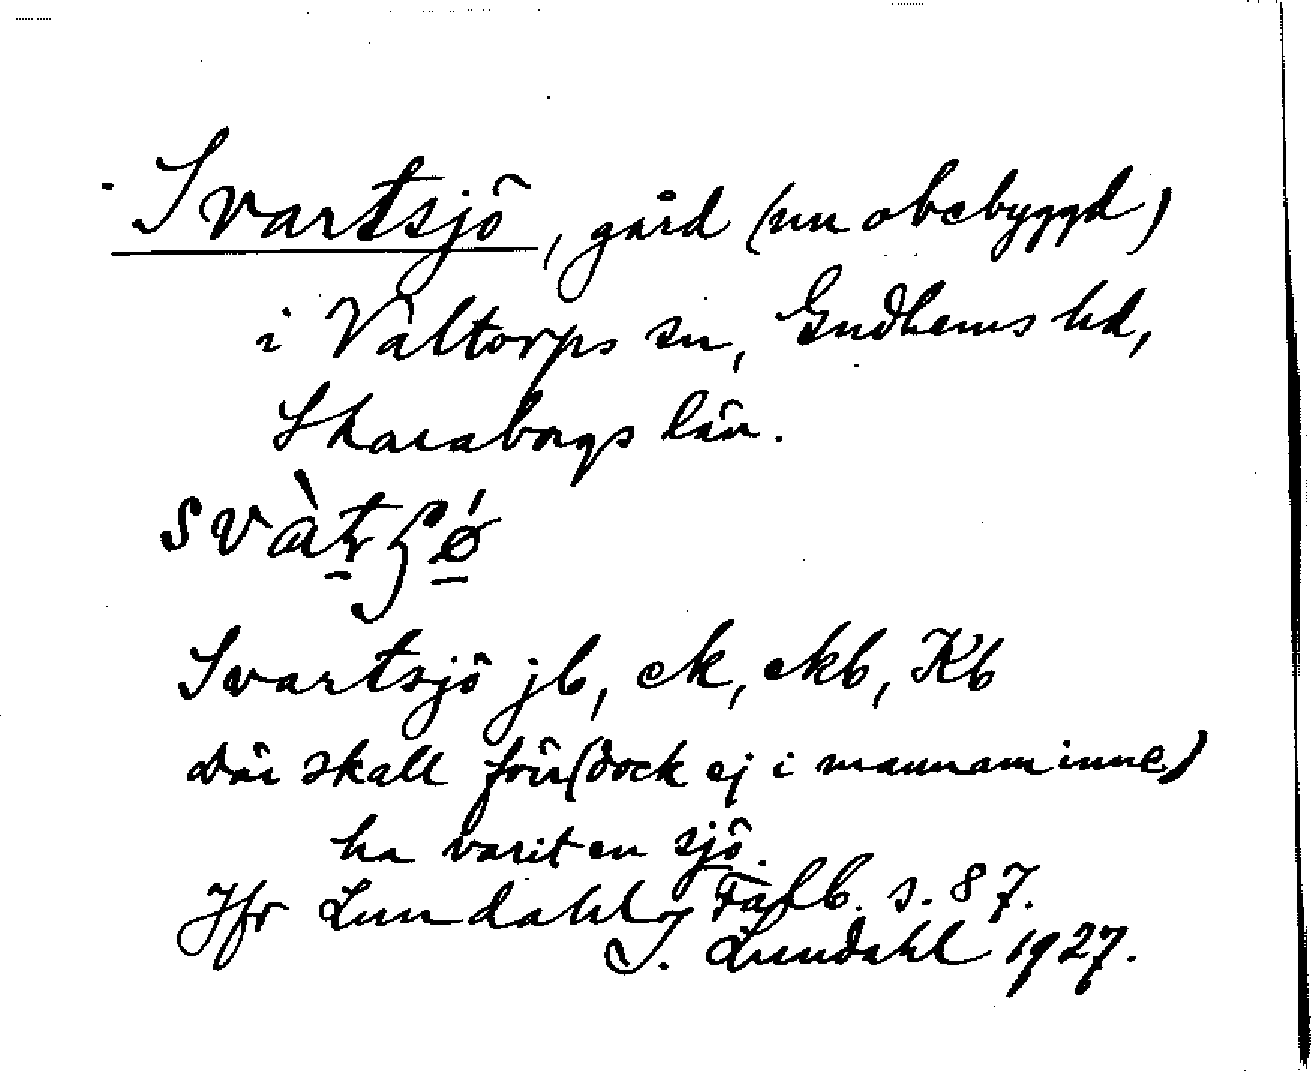 Svartsjö, gård (nu obebyggd)
i Valtorps sn, Gudhems hd,
Skaraborgs län.
Svartsjö jb, ek, ekb, Kb
Där skall förr (dock ej i mannaminne)
ha varit en sjö.
Jfr Lundahl, Falb. s. 87.
I. Lundahl 1927.